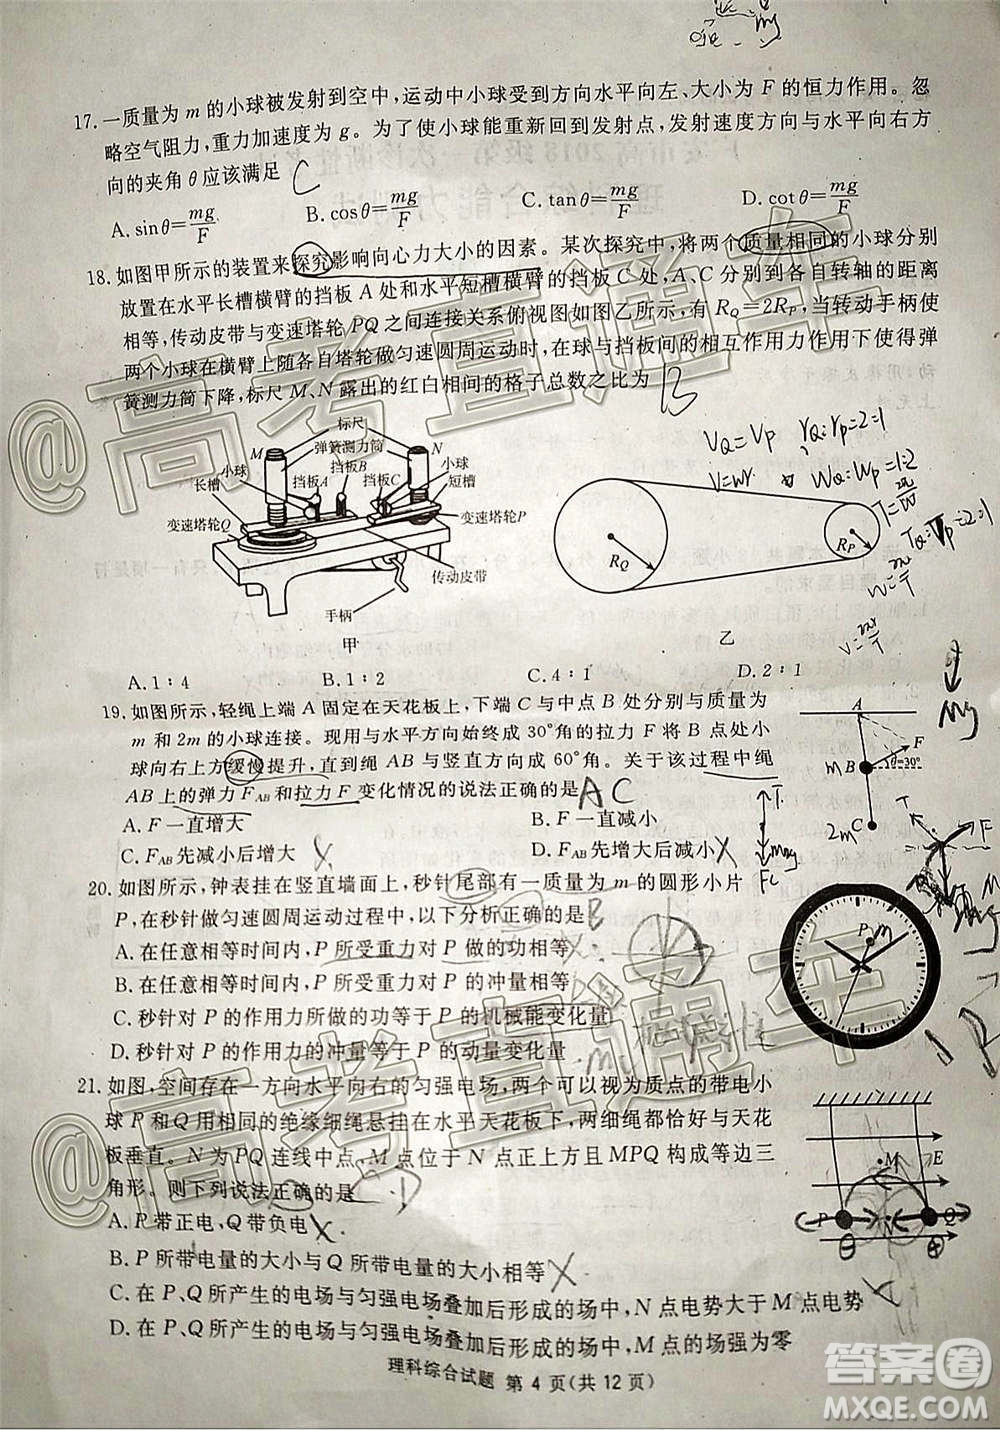 17.一质量为 m 的小球被发射到空中,运动中小球受到方向水平向左、大小为 F 的恒力作用。忽
略空气阻力,重力加速度为 g。为了使小球能重新回到发射点,发射速度方向与水平向右方
向的夹角 θ 应该满足 C
A. sinθ=mg/F
B. cosθ=mg/F
C. tanθ=mg/F
D. cotθ=mg/F
18.如图甲所示的装置来探究影响向心力大小的因素。某次探究中,将两个质量相同的小球分别
放置在水平长槽横臂的挡板 A 处和水平短槽横臂的挡板 C 处,A、C 分别到各自转轴的距离
相等,传动皮带与变速塔轮 PQ 之间连接关系俯视图如图乙所示,有 RQ=2RP,当转动手柄使
两个小球在横臂上随各自塔轮做匀速圆周运动时,在球与挡板间的相互作用力作用下使弹
簧测力筒下降,标尺 M、N 露出的红白相间的格子总数之比为 B
标尺
M
弹簧测力筒
N
小球
挡板B
小球
长槽
挡板A
挡板C
短槽
变速塔轮Q
变速塔轮P
传动皮带
手柄
甲
RQ
RP
乙
VQ=VP rQ:rP=2:1
V=wr
WQ:WP=1:2
A.1∶4
B.1∶2
C.4∶1
D.2∶1
19.如图所示,轻绳上端 A 固定在天花板上,下端 C 与中点 B 处分别与质量为
m 和 2m 的小球连接。现用与水平方向始终成 30°角的拉力 F 将 B 点处小
球向右上方缓慢提升,直到绳 AB 与竖直方向成 60°角。关于该过程中绳
AB 上的弹力 FAB 和拉力 F 变化情况的说法正确的是 AC
A. F 一直增大
B. F 一直减小
C. FAB先减小后增大
D. FAB先增大后减小
A
F
mB
θ=30°
2m C
mg
20.如图所示,钟表挂在竖直墙面上,秒针尾部有一质量为 m 的圆形小片
P,在秒针做匀速圆周运动过程中,以下分析正确的是 B
A.在任意相等时间内,P 所受重力对 P 做的功相等
B.在任意相等时间内,P 所受重力对 P 的冲量相等
C.秒针对 P 的作用力所做的功等于 P 的机械能变化量
D.秒针对 P 的作用力的冲量等于 P 的动量变化量
P
m
21.如图,空间存在一方向水平向右的匀强电场,两个可以视为质点的带电小
球 P 和 Q 用相同的绝缘细绳悬挂在水平天花板下,两细绳都恰好与天花
板垂直。N 为 PQ 连线中点,M 点位于 N 点正上方且 MPQ 构成等边三
角形。则下列说法正确的是 CD
A. P 带正电,Q 带负电
B. P 所带电量的大小与 Q 所带电量的大小相等
C.在 P、Q 所产生的电场与匀强电场叠加后形成的场中,N 点电势大于 M 点电势
D.在 P、Q 所产生的电场与匀强电场叠加后形成的场中,M 点的场强为零
M
E
P
N
Q
理科综合试题 第 4 页(共 12 页)
@高考直通车
@高考直通车
答案圈
MXQE.COM